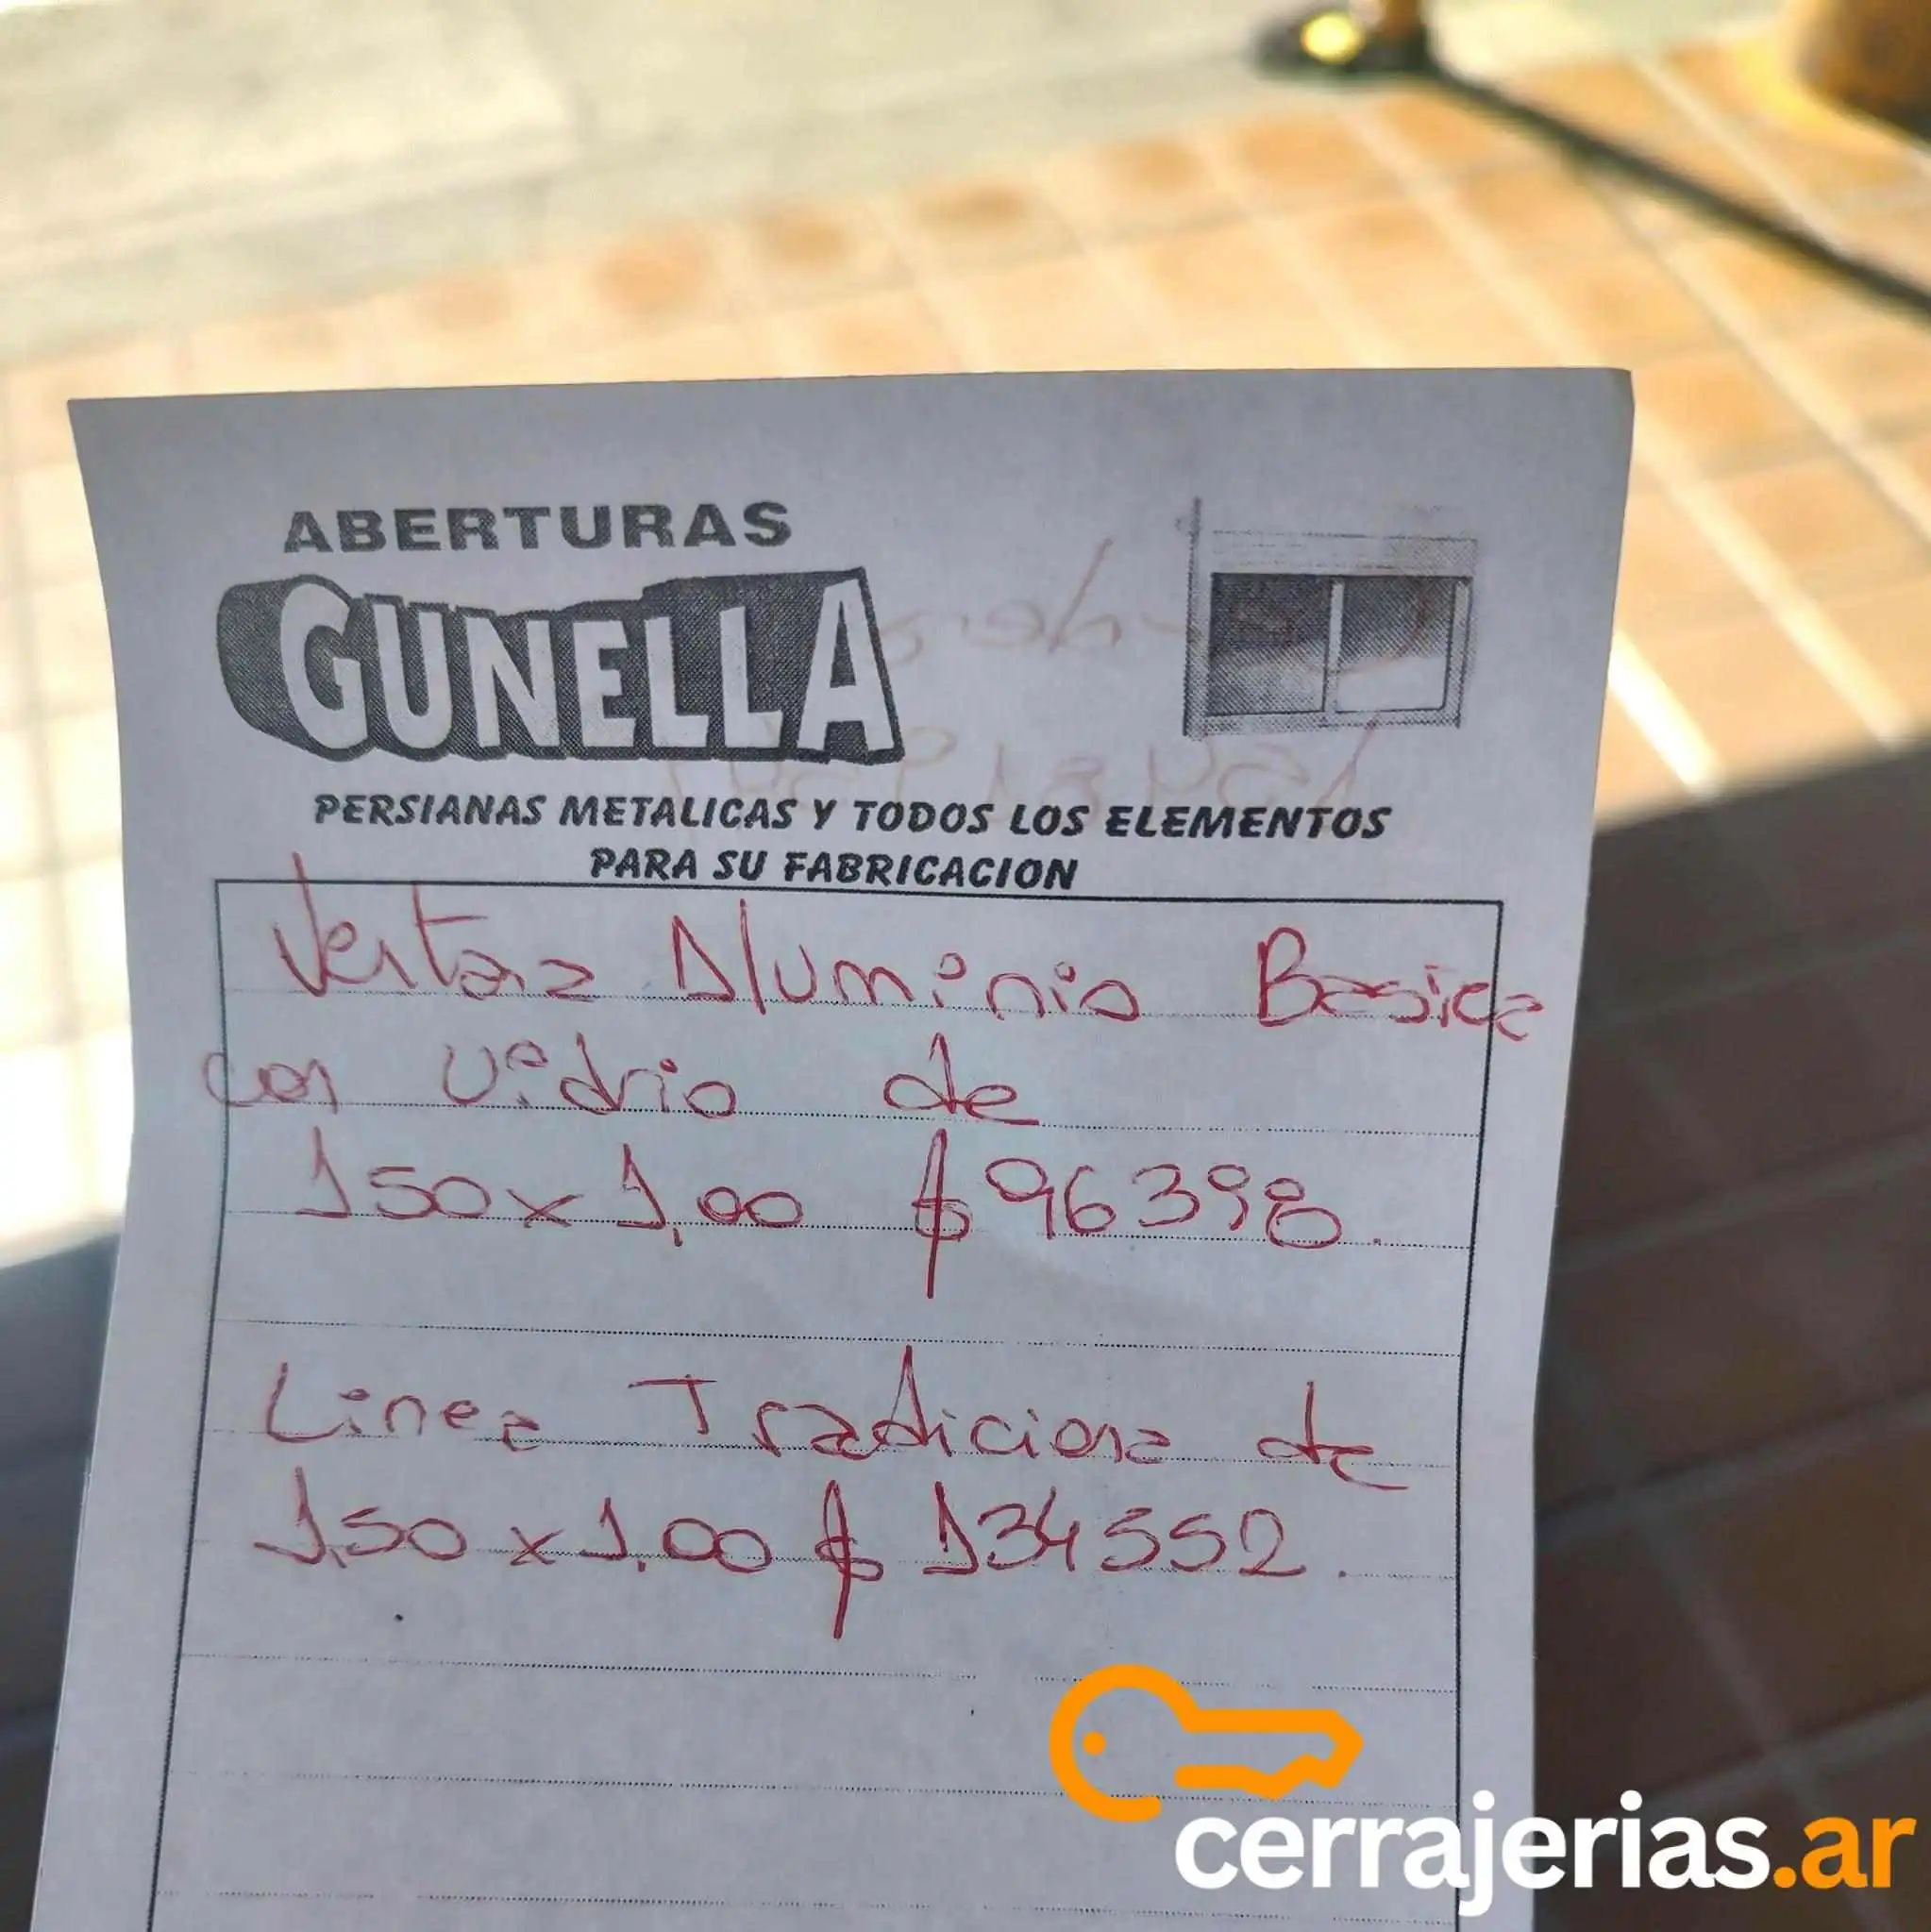 ABERTURAS
GUNELLA
PERSIANAS METALICAS Y TODOS LOS ELEMENTOS
PARA SU FABRICACION
Ventana Aluminio Basica
con vidrio de
150 x 1,00 $ 96398.
Linea Tradiciona de
1,50 x 1.00 $ 134552.
cerrajerias.ar